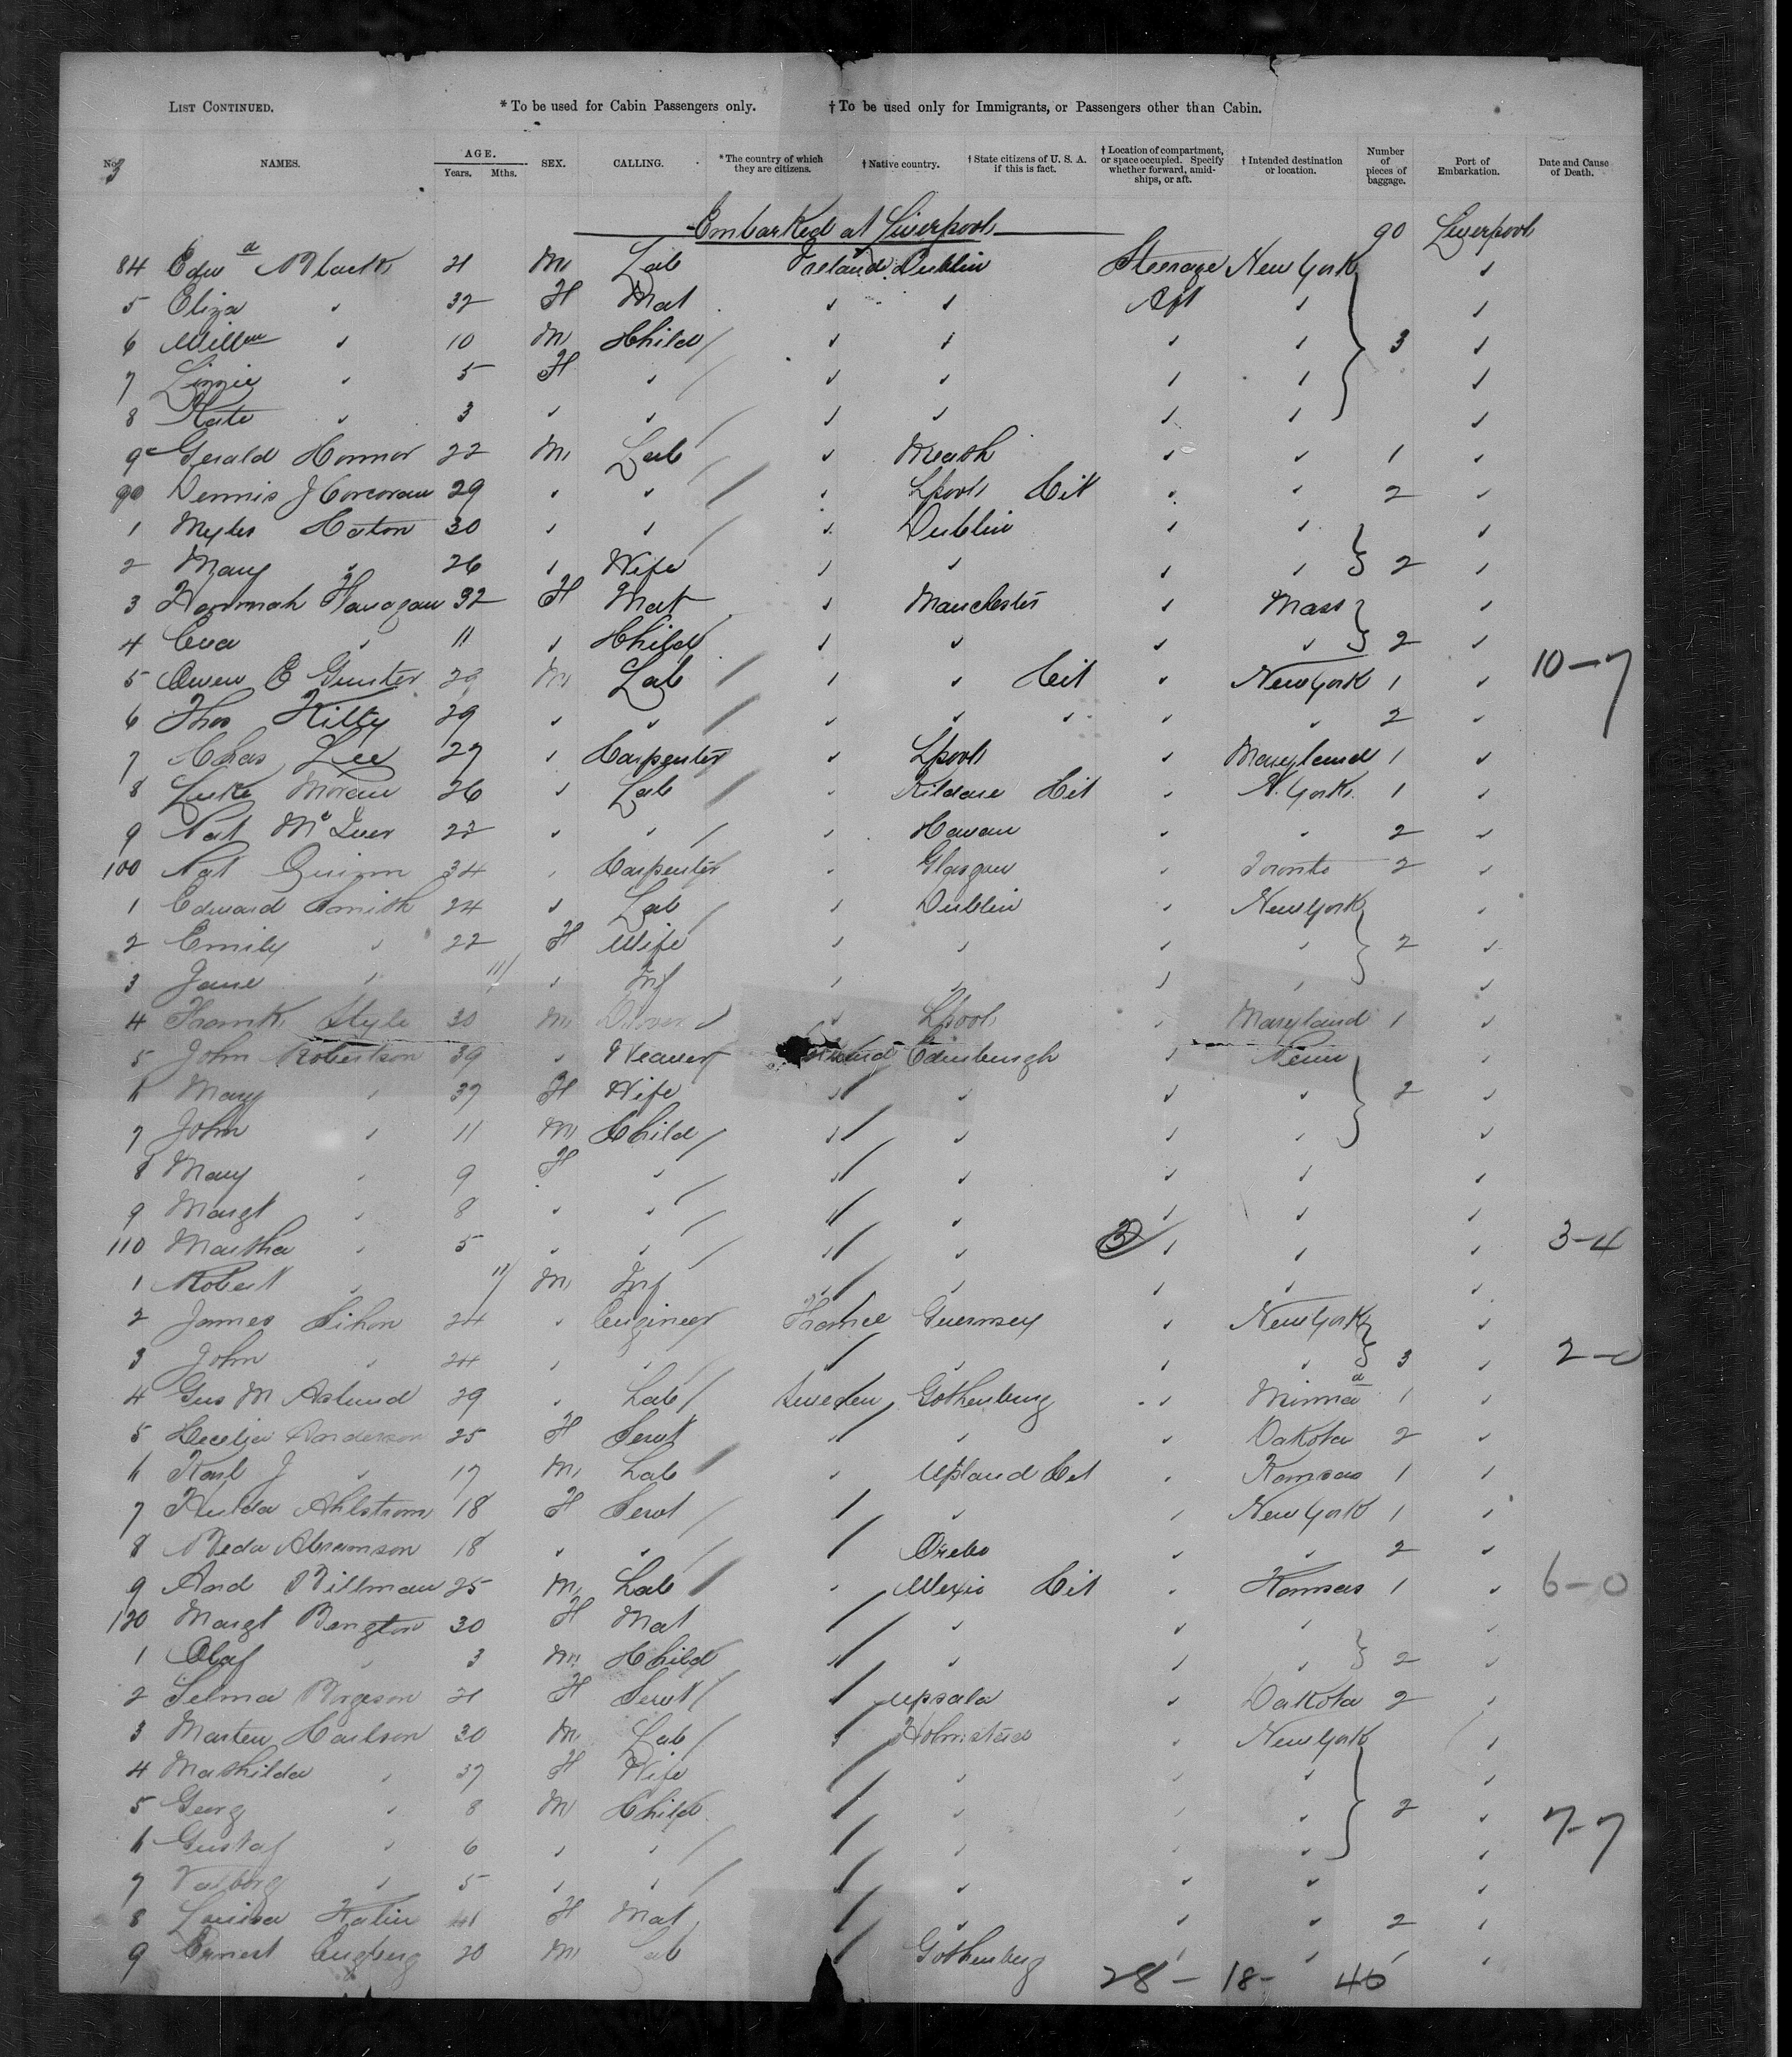 LIST CONTINUED. * To be used for Cabin Passengers only. † To be used only for Immigrants, or Passengers other than Cabin.
No. NAMES. AGE. Years. Mths. SEX. CALLING. * The country of which they are citizens. † Native country. † State citizens of U. S. A. if this is fact. † Location of compartment, or space occupied. Specify whether forward, amidships, or aft. † Intended destination or location. Number of pieces of baggage. Port of Embarkation. Date and Cause of Death.
3
Embarked at Liverpool 90 Liverpool
84 Edwd Black 21 M Lab Ireland Dublin Steerage New York ✓
5 Eliza ✓ 32 F Mat ✓ ✓ Aft ✓ ✓
6 Willm ✓ 10 M Child ✓ ✓ ✓ ✓ 3 ✓
7 Lizzie ✓ 5 F ✓ ✓ ✓ ✓ ✓ ✓
8 Kate ✓ 3 ✓ ✓ ✓ ✓ ✓ ✓ ✓
9 Gerald Connor 22 M Lab ✓ Meath ✓ ✓ 1 ✓
90 Dennis J Corcoran 29 ✓ ✓ ✓ Lpool Cit ✓ ✓ 2 ✓
1 Myles Caton 30 ✓ ✓ ✓ Dublin ✓ ✓ ✓
2 Mary ✓ 26 ✓ Wife ✓ ✓ ✓ ✓ 2 ✓
3 Hannah Flanagan 32 F Mat ✓ Manchester ✓ Mass ✓
4 Eva ✓ 11 ✓ Child ✓ ✓ ✓ ✓ 2 ✓
5 Owen E Gunter 29 M Lab ✓ ✓ Cit ✓ New York 1 ✓ 10-7
6 Thos Kilty 29 ✓ ✓ ✓ ✓ ✓ ✓ ✓ 2 ✓
7 Chas Lee 27 ✓ Carpenter ✓ Lpool ✓ Maryland 1 ✓
8 Luke Moran 26 ✓ Lab ✓ Kildare Cit ✓ N. York 1 ✓
9 Pat 22 ✓ ✓ ✓ Cavan ✓ ✓ 2 ✓
100 Pat Quinn 34 ✓ Carpenter ✓ Glasgow ✓ Toronto 2 ✓
1 Edward Smith 24 ✓ Lab ✓ Dublin ✓ New York ✓
2 Emily ✓ 22 F Wife ✓ ✓ ✓ ✓ 2 ✓
3 Jane ✓ 11/ ✓ Inf ✓ ✓ ✓ ✓ ✓
4 Frank Style 30 M ✓ Lpool ✓ Maryland 1 ✓
5 John Robertson 39 ✓ Weaver Edinburgh ✓ Penn ✓
6 Mary ✓ 37 F Wife ✓ ✓ ✓ ✓ 2 ✓
7 John ✓ 11 M Child ✓ ✓ ✓ ✓ ✓
8 Mary ✓ 9 F ✓ ✓ ✓ ✓ ✓ ✓
9 Margt ✓ 8 ✓ ✓ ✓ ✓ ✓ ✓ ✓
110 Martha ✓ 5 ✓ ✓ ✓ ✓ 3 ✓ ✓ ✓ 3-4
1 Robert ✓ 11/ M Inf ✓ ✓ ✓ ✓ ✓
2 James Sihon 24 ✓ Engineer France Guernsey ✓ New York ✓
3 John ✓ 24 ✓ ✓ ✓ ✓ ✓ 3 ✓ 2-0
4 Gus M Aslund 29 ✓ Lab Sweden Gothenburg ✓ Minna 1 ✓
5 Cecelia Anderson 25 F Servt ✓ ✓ ✓ Dakota 2 ✓
6 Karl J ✓ 17 M Lab ✓ Upland Cit ✓ Kansas 1 ✓
7 Hulda Ahlstrom 18 F Servt ✓ ✓ New York 1 ✓
8 Beda Abramson 18 ✓ ✓ Orebo ✓ ✓ 2 ✓
9 And Billman 25 M Lab ✓ Wexio Cit ✓ Kansas 1 ✓ 6-0
120 Margt Bengton 30 F Mat ✓ ✓ ✓ ✓
1 Olaf ✓ 3 M Child ✓ ✓ ✓ ✓ 2 ✓
2 Selma Borgeson 21 F Servt Upsala ✓ Dakota 2 ✓
3 Marten Carlson 30 M Lab ✓ Holmstad ✓ New York ✓
4 Mathilda ✓ 37 F Wife ✓ ✓ ✓ ✓
5 Georg ✓ 8 M Child ✓ ✓ ✓ 2 ✓
6 Gustaf ✓ 6 ✓ ✓ ✓ ✓ ✓ ✓ 7-7
7 Valborg ✓ 5 ✓ ✓ ✓ ✓ ✓ ✓
8 Louisa Kalin 41 F Mat ✓ ✓ ✓ 2 ✓
9 Ernest Engberg 20 M Lab Gothenburg ✓ ✓ ✓ ✓
28 - 18 - 46